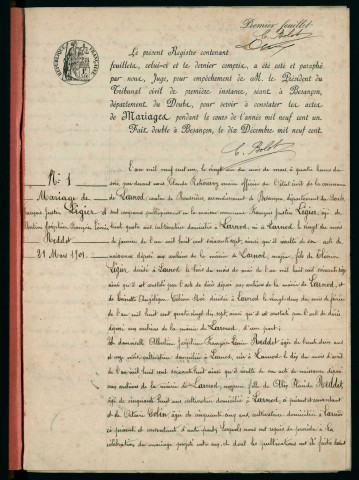 Premier feuillet
E. Bolot
RÉPUBLIQUE FRANÇAISE
Le présent Registre contenant
feuillets, celui-ci et le dernier compris, a été coté et paraphé
par nous, Juge, pour empêchement de M. le Président du
Tribunal civil de première instance, séant à Besançon,
département du Doubs, pour servir à constater les actes
de Mariages pendant le cours de l'année mil neuf cent un.
Fait double à Besançon, le dix Décembre mil neuf cent.
E. Bolot
N° 1
Mariage de
François Justin Légier et
Albertine Joséphine François Léonie
Meddet
21 Mars 1901.
L'an mil neuf cent un, le vingt un du mois de mars à quatre heures du
soir, par devant nous Claude maire officier de l'état civil de la commune
de Larnod, canton de Boussières, arrondissement de Besançon, département du Doubs,
sont comparus publiquement en la maison commune François Justin Légier, âgé de
vingt quatre ans cultivateur domicilié à Larnod, né à Larnod le vingt du mois
de janvier de l'an mil huit cent soixante dix sept, ainsi qu'il résulte de son acte de
naissance déposé aux archives de la mairie de Larnod, majeur, fils de Etienne
Légier, décédé à Larnod le trois du mois de mai de l'an mil huit cent
ainsi qu'il est constaté par l'acte de décès déposé aux archives de la mairie de Larnod, et
de Angélique décédée à Larnod le vingt-cinq du mois de février
de l'an mil huit cent quatre vingt sept, ainsi qu'il est constaté par l'acte de décès
déposé aux archives de la mairie de Larnod, d'une part ;
Et demoiselle Albertine Joséphine François Léonie Meddet âgée de trente deux ans
et onze mois, cultivatrice domiciliée à Larnod, née à Larnod le dix du mois d'avril
de l'an mil huit cent soixante huit ainsi qu'il résulte de son acte de naissance déposé
aux archives de la mairie de Larnod, majeure, fille de Meddet,
âgé de cinquante huit ans cultivateur domicilié à Larnod, ci présent et consentant
et de âgée de cinquante cinq ans, cultivatrice domiciliée à Larnod
ci présente et consentante d'autre part ; lesquels nous ont requis de procéder à la
célébration du mariage projeté entre eux, et dont les publications ont été faites devant